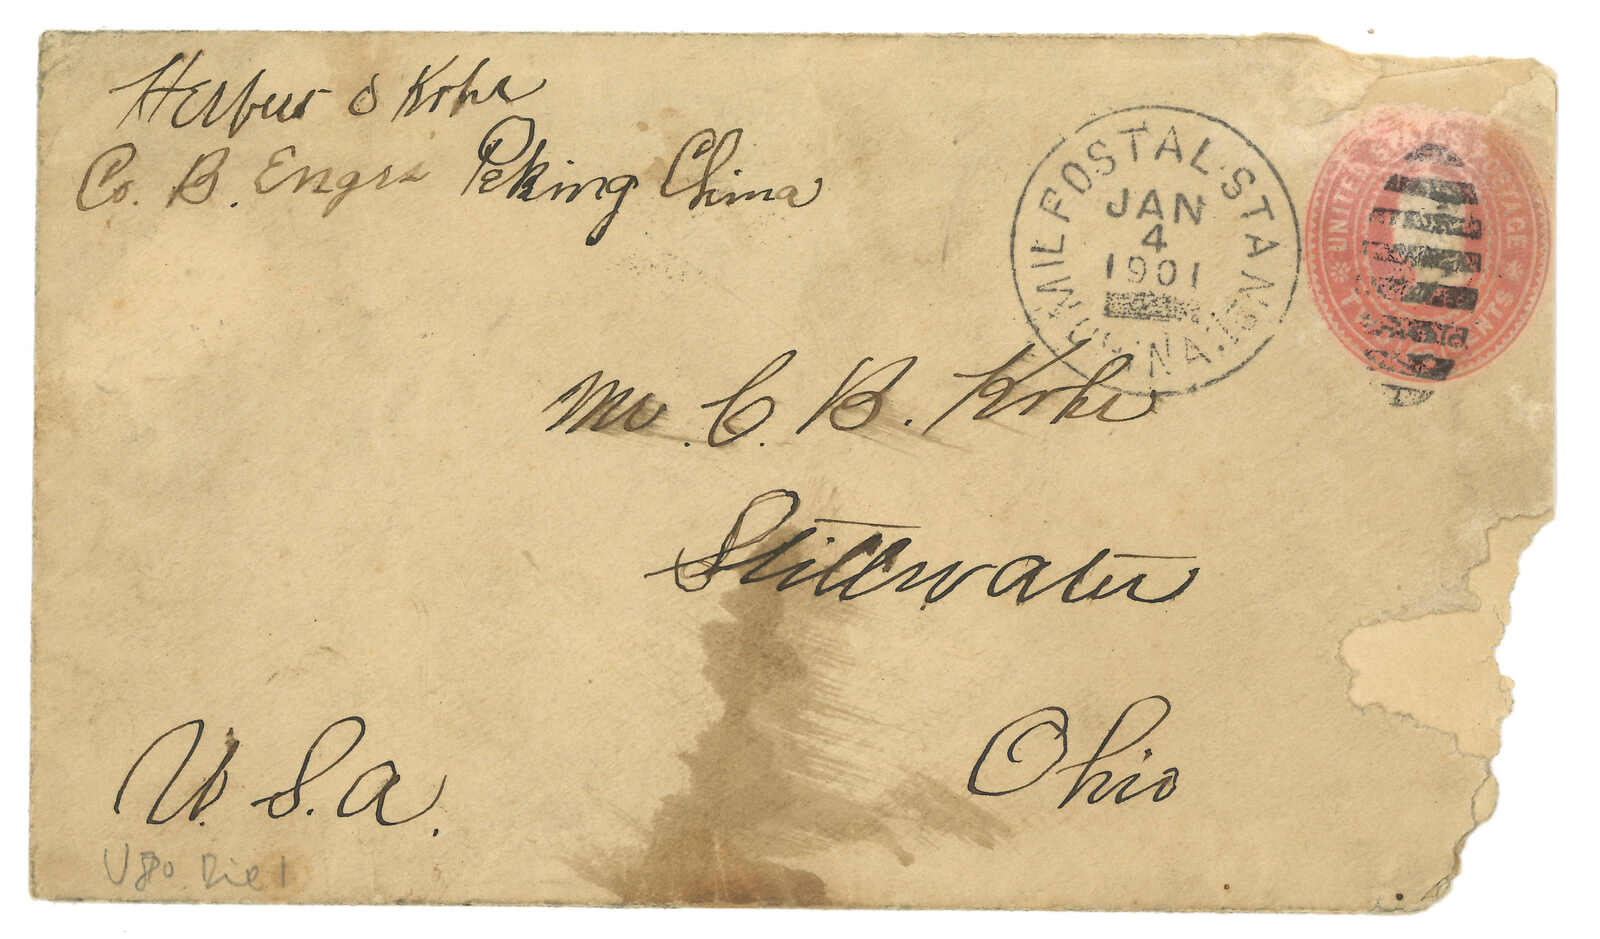 Herbert S Kohr
Co. B. Engrs Peking China
MIL. POSTAL. STA. No
CHINA.
JAN
4
1901
UNITED STATES POSTAGE
TWO CENTS
Mr. C. B. Kohr
Stillwater
Ohio
U.S.A.
Die 1